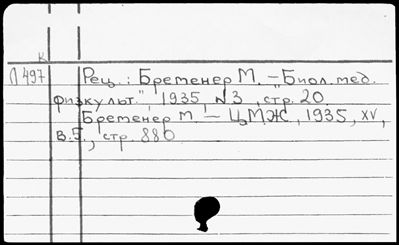 к
П 497 Рец.: Бретенер М. – Биол. мед.
физкульт.", 1935, №3, стр. 20.
Бретенер М. – Ц.М.Ж., 1935, XV,
в.5., стр. 880